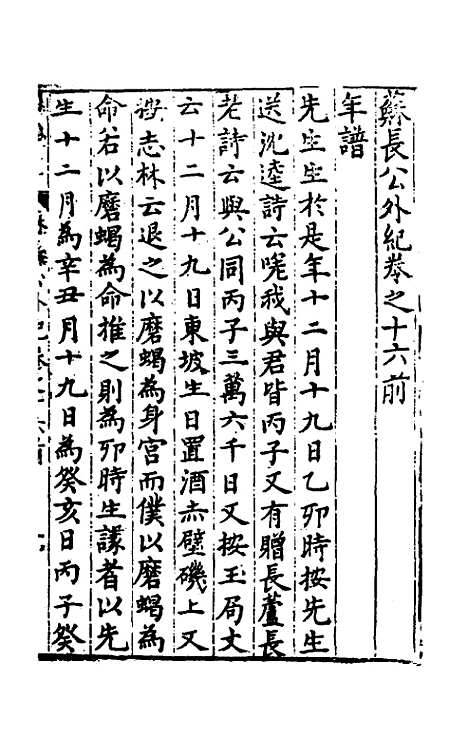 蘇長公外紀卷之十六前
年譜
先生生於是年十二月十九日乙卯時按先生
送沈逵詩云嗟我與君皆丙子又有贈長蘆長
老詩云與公同丙子三萬六千日又按玉局文
云十二月十九日東坡生日置酒赤壁磯上又
按志林云退之以磨蝎為身宮而僕以磨蝎為
命若以磨蝎為命推之則為卯時生議者以先
生十二月為辛丑月十九日為癸亥日丙子癸